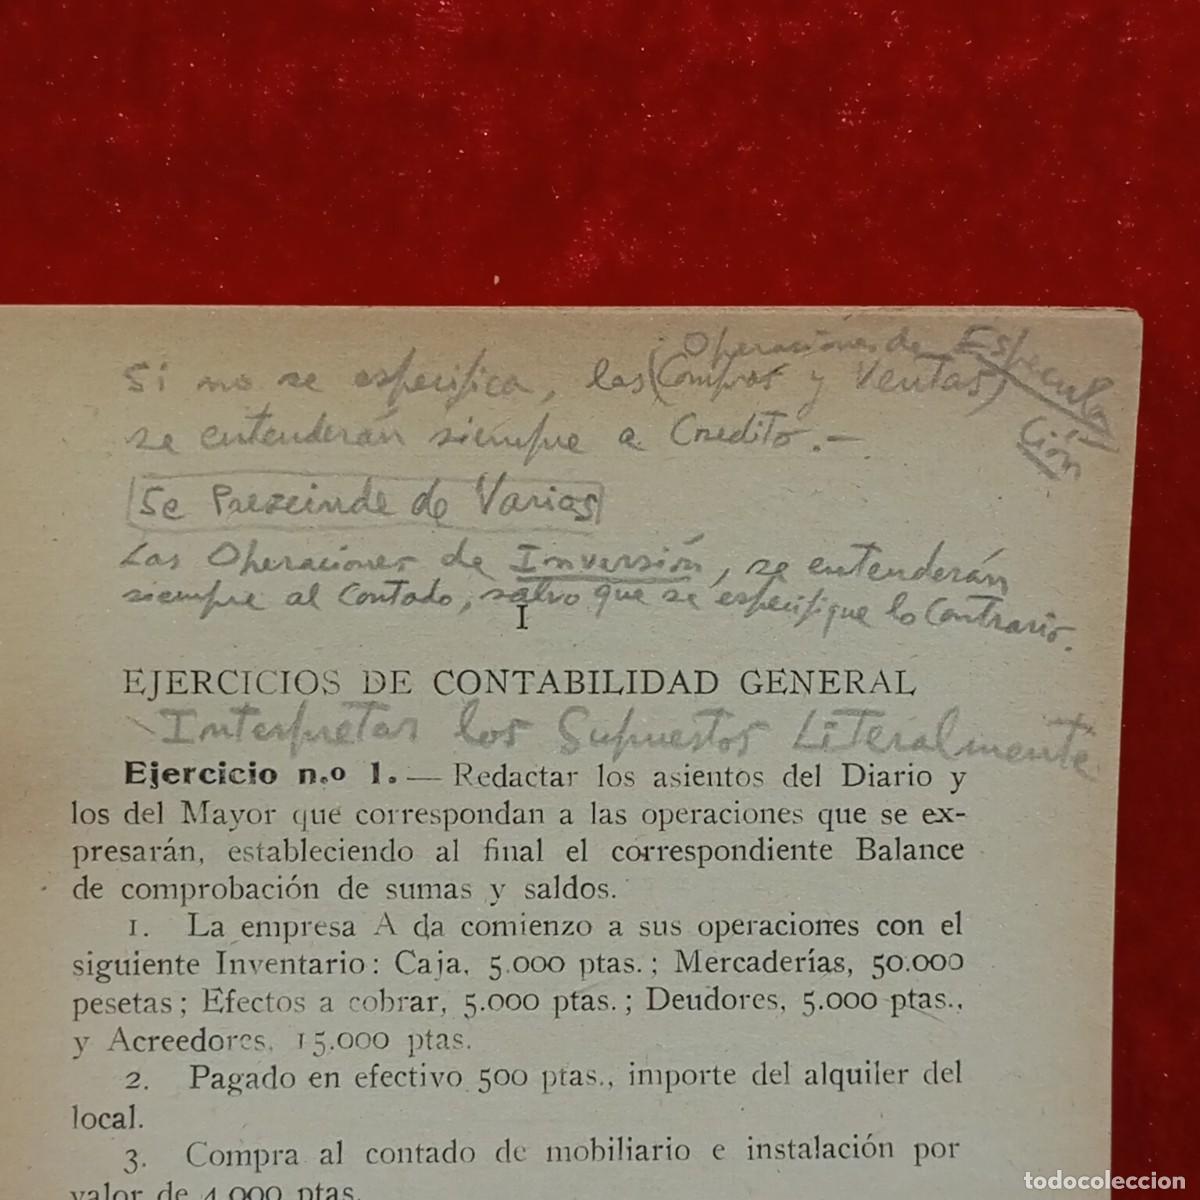 Operaciones de Especula
ción
Si no se especifica, las (Compras y Ventas)
se entenderán siempre a Credito.-
Se Prezcinde de Varios
Las Operaciones de Inversión, se entenderán
siempre al Contado, salvo que se especifique lo Contrario.
I
EJERCICIOS DE CONTABILIDAD GENERAL
Interpretar los Supuestos Literalmente
Ejercicio n.º 1. — Redactar los asientos del Diario y
los del Mayor que correspondan a las operaciones que se ex-
presarán, estableciendo al final el correspondiente Balance
de comprobación de sumas y saldos.
1. La empresa A da comienzo a sus operaciones con el
siguiente Inventario: Caja, 5.000 ptas.; Mercaderías, 50.000
pesetas; Efectos a cobrar, 5.000 ptas.; Deudores, 5.000 ptas.,
y Acreedores, 15.000 ptas.
2. Pagado en efectivo 500 ptas., importe del alquiler del
local.
3. Compra al contado de mobiliario e instalación por
valor de 4.000 ptas.
todocoleccion